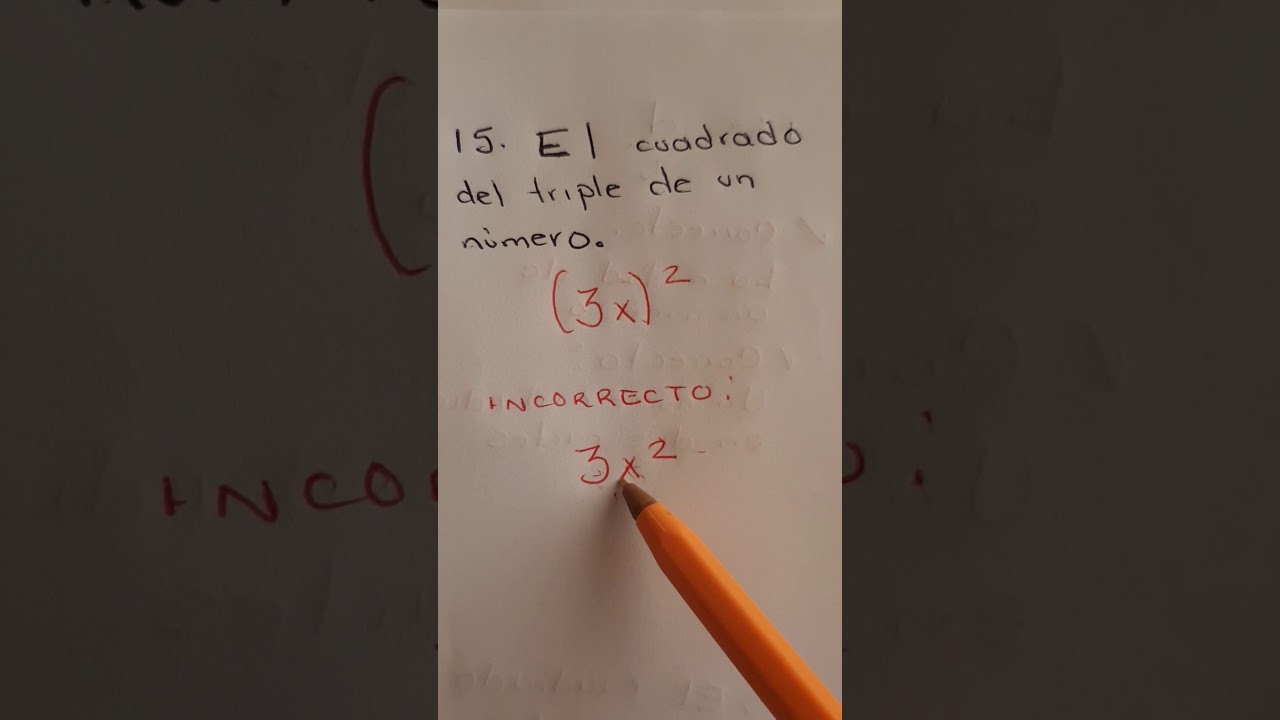 15. El cuadrado
del triple de un
número.
(3x)²
INCORRECTO:
3x²